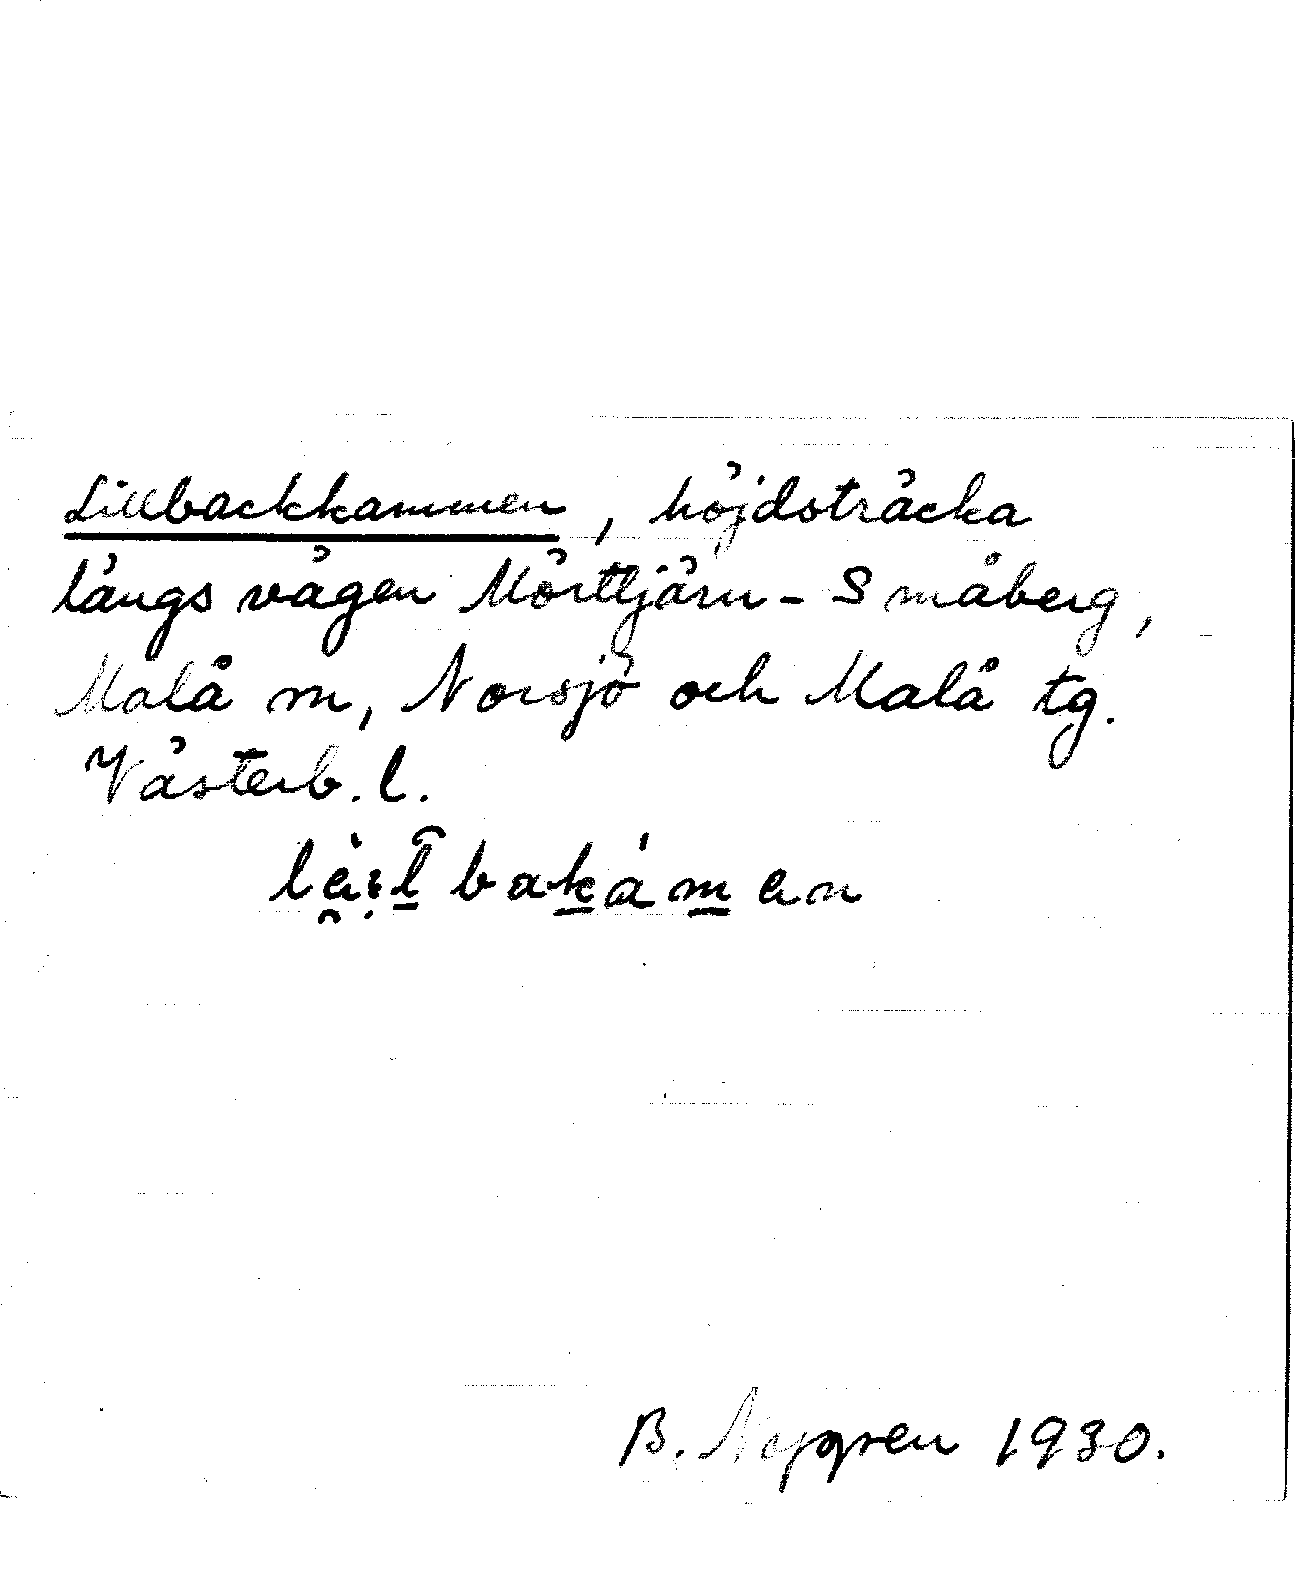 Lillbackkammen, höjdsträcka
längs vägen Mörttjärn - Småberg,
Malå m, Norsjö och Malå tg.
Västerb. l.
bakámen
B. Nygren 1930.